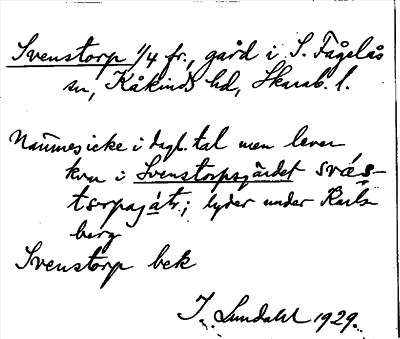 Svenstorp 1/4 fr., gård i S. Fågelås
sn, Kåkinds hd, Skarab. l.
Namnes icke i dagl. tal men lever
kvar i Svenstorpsgärdet sväs-
torpsgät; lyder under Karls
berg
Svenstorp bek
I. Lundahl 1929.